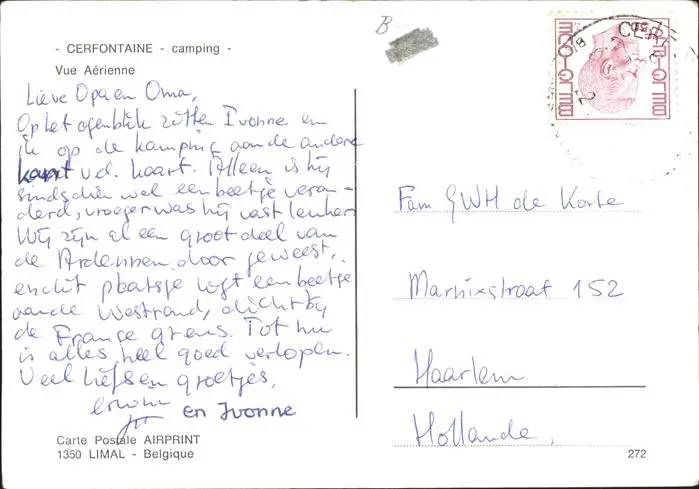 B
- CERFONTAINE - camping -
Vue Aérienne
Lieve Opa en Oma,
Op het ogenblik zitten Ivonne en
ik op de kamping aan de andere
kant v.d. kaart. Alleen is hij
sindsdien wel een beetje veran-
derd, vroeger was hij vast leuker
Wij zijn al een groot deel van
de Ardennen door geweest,
en dit plaatsje ligt een beetje
aan de Westrand, dicht bij
de Franse grens. Tot nu
is alles heel goed verlopen.
Veel liefs en groetjes,
en Ivonne
Carte Postale AIRPRINT
1350 LIMAL - Belgique
Fam GWH de Korte
Marnixstraat 152
Haarlem
Hollande,
272